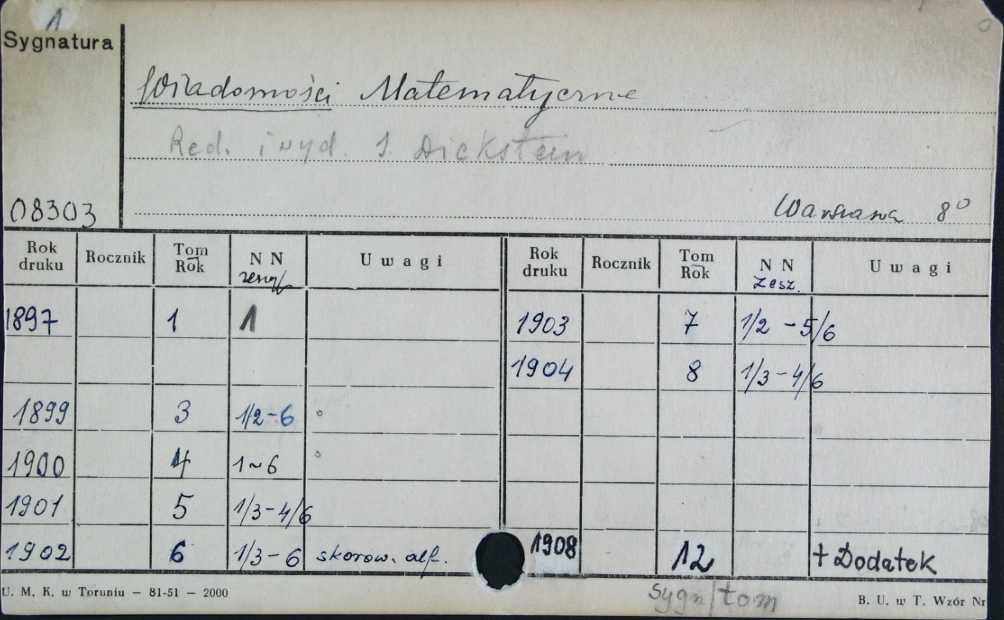 1
Sygnatura
Wiadomości Matematyczne
Red. i wyd. S. Dickstein
08303
Warszawa 8°
Rok druku Rocznik Tom Rok N N zeszyt U w a g i Rok druku Rocznik Tom Rok N N zesz. U w a g i
1897 1 1 1903 7 1/2 - 5/6
1904 8 1/3 - 4/6
1899 3 1/2 - 6
1900 4 1 ~ 6
1901 5 1/3 - 4/6
1902 6 1/3 - 6 skorow. alf. 1908 12 + Dodatek
U. M. K. w Toruniu – 81-51 – 2000 Sygn/tom B. U. w T. Wzór Nr